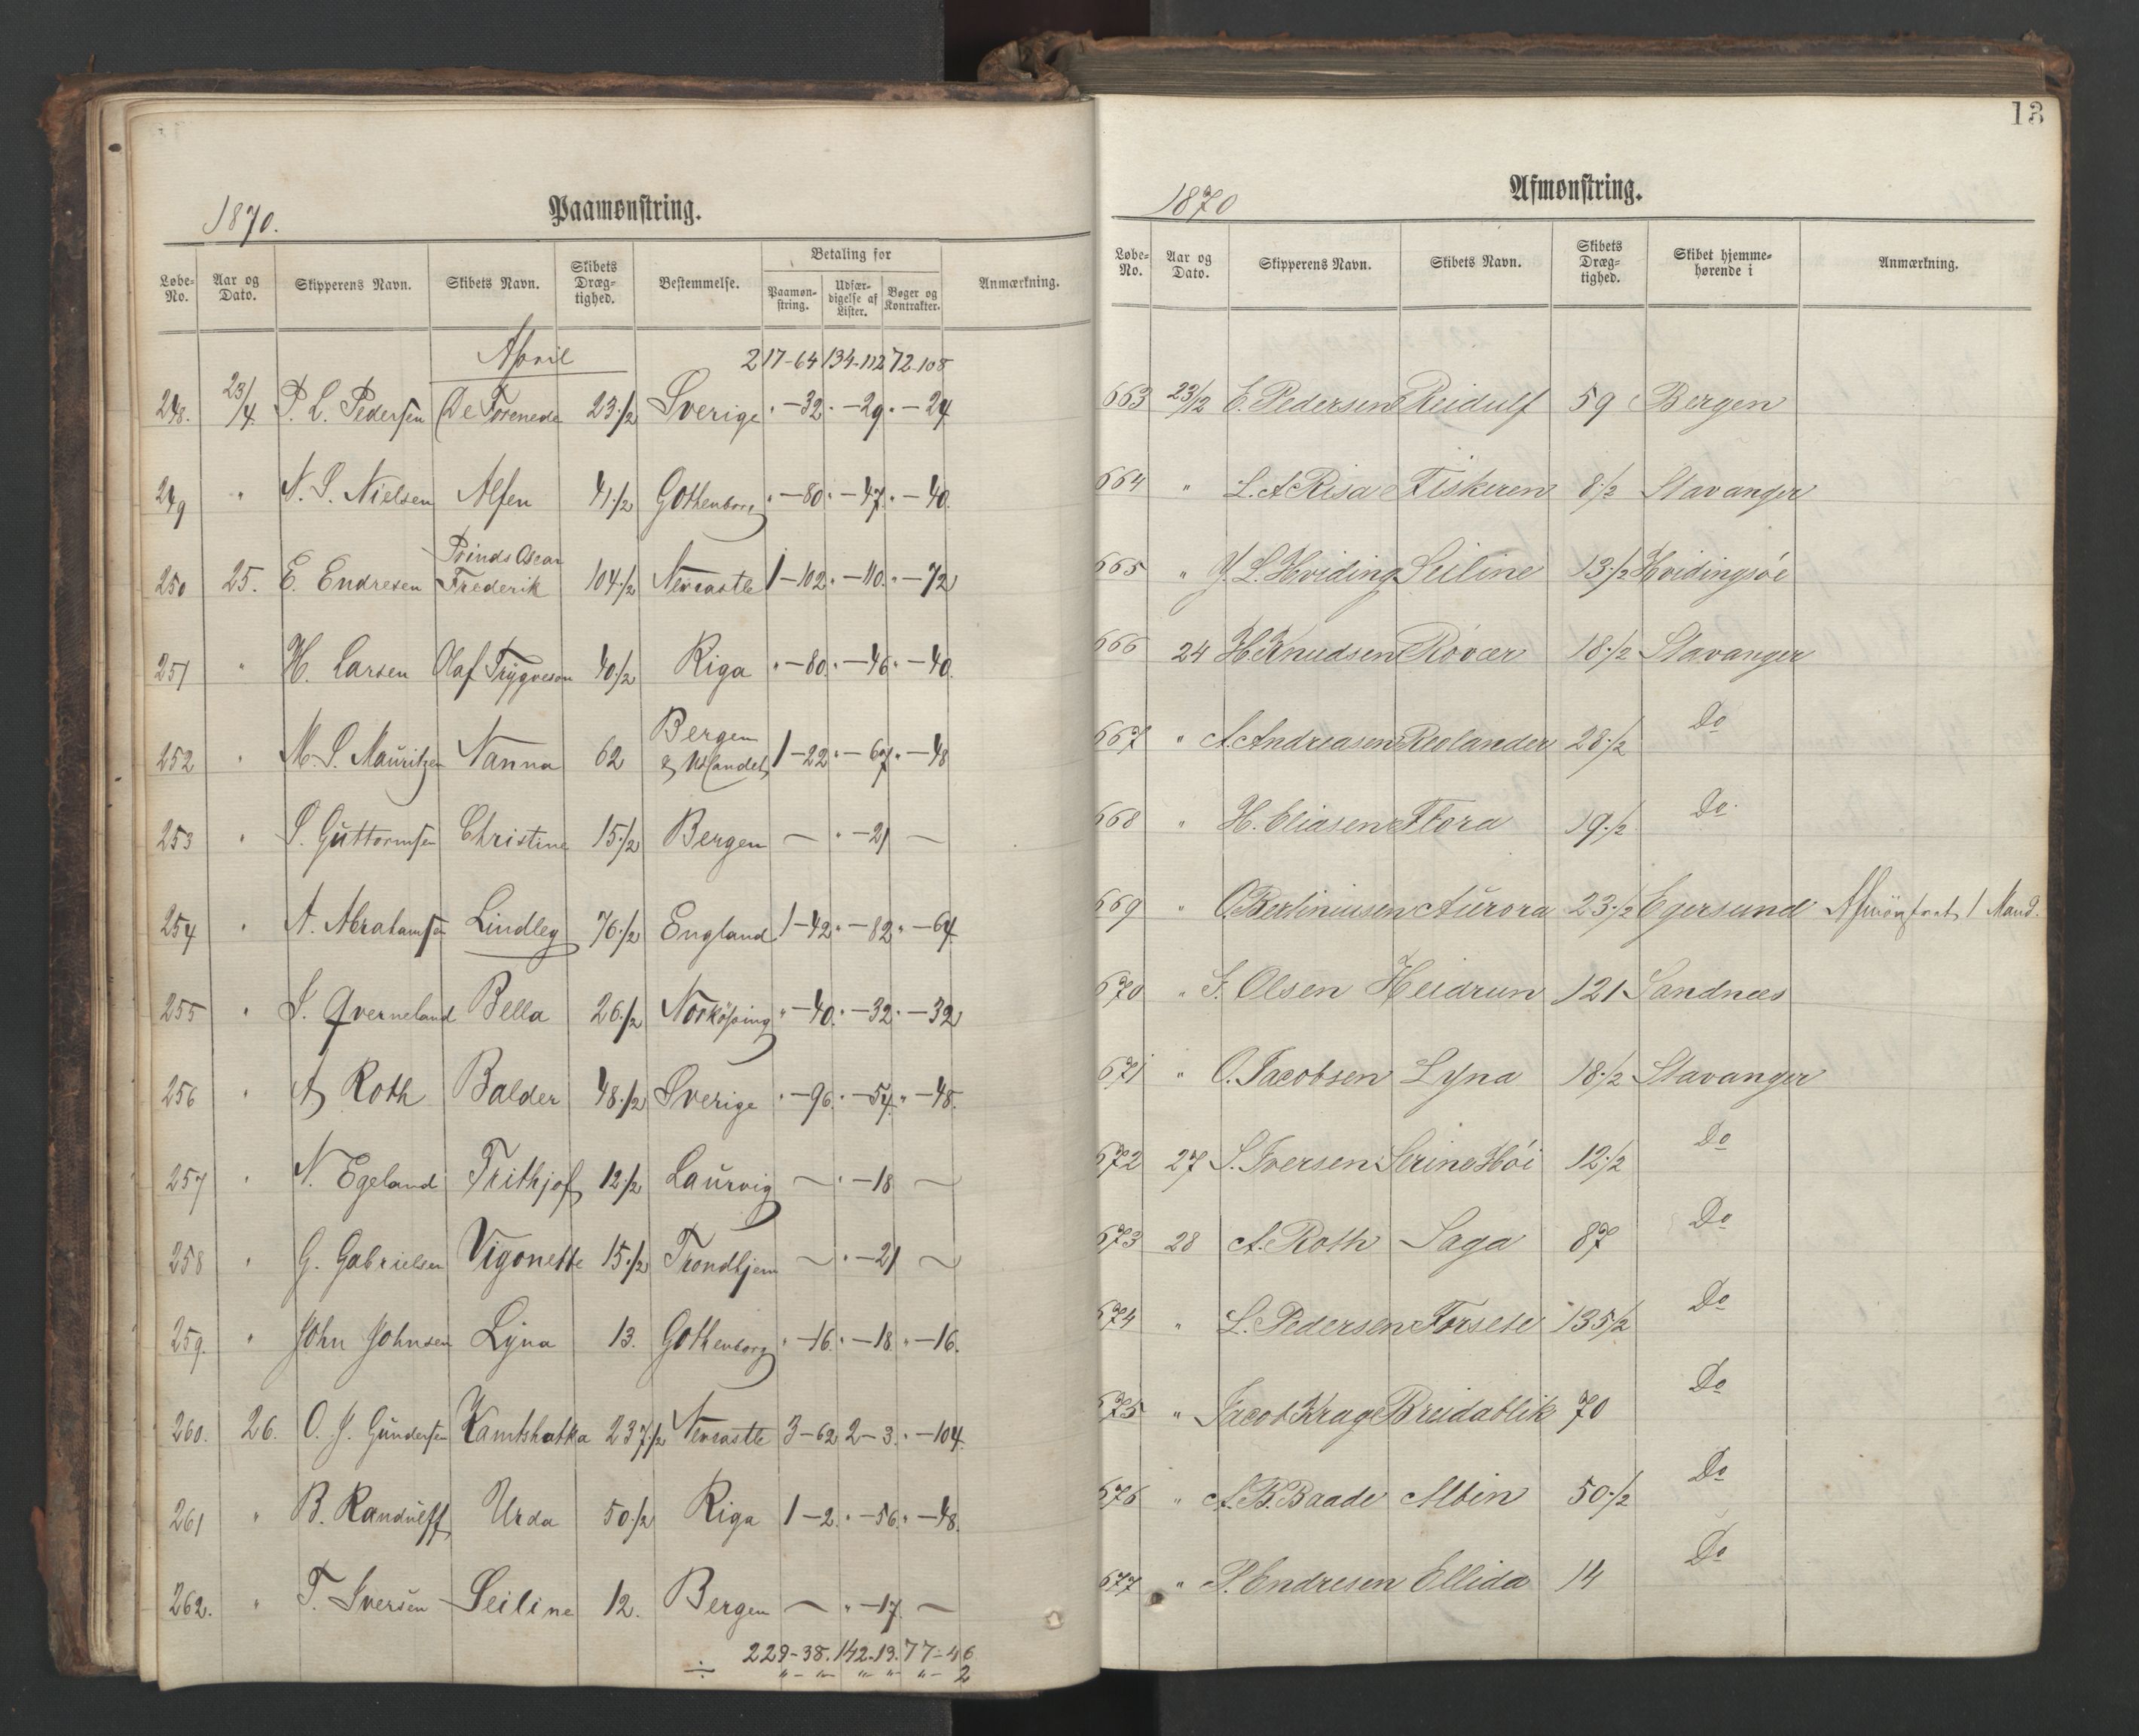 1870.
Paamønstring.
Løbe-No. Aar og Dato. Skipperens Navn. Skibets Navn. Skibets Dræg-tighed. Bestemmelse. Betaling for Paamøn-string. Udfær-digelse af Lister. Bøger og Kontrakter. Anmærkning.
April 217-64 134-112 72-108
248. 23/4 P. L. Pedersen De Forenede 23 1/2 Sverige " - 32 " - 29 " - 24
249 " N. S. Nielsen Alfen 41 1/2 Gothenborg " - 80 " - 47 " - 40.
250 25. E. Endresen Prinds Oscar Frederik 104 1/2 Newcastle 1 - 102 " - 110 " - 72
251 " H. Larsen Olaf Trygveson 40 1/2 Riga " - 80 " - 46 " - 40.
252 " M. S. Mauritzen Nanna 62 Bergen & Udlandet 1 - 22 " - 67 " - 48
253 " S. Guttormsen Christine 15 1/2 Bergen — " - 21 —
254 " A. Abrahamsen Lindley 76 1/2 England 1 - 42 " - 82 " - 64
255 " S. Qverneland Bella 26 1/2 Norköping " - 40 " - 32 " - 32
256 " A Roth Balder 48 1/2 Sverige " - 96 " - 54 " - 48.
257 " N. Egeland Frithjof 12 1/2 Laurvig — " - 18 —
258 " G. Gabrielsen Vigonette 15 1/2 Trondhjem — " - 21 —
259. " John Johnsen Lyna 13. Gothenborg " - 16. " - 18 " - 16.
260. 26. O. J. Gundersen Kamtshatka 237 1/2 Newcastle 3 - 62 2 - 3. " - 104.
261 " B. Randulff Urda 50 1/2 Riga 1 - 2. " - 56. " - 48.
262. " T. Iversen Seiline 12. Bergen — " - 17 —
229-38. 142-13. 77-46
÷ " - " " - " " - 2
13
1870
Afmønstring.
Løbe-No. Aar og Dato. Skipperens Navn. Skibets Navn. Skibets Dræg-tighed. Skibet hjemme-hørende i Anmærkning.
663 23/12 E. Pedersen Reidulf 59 Bergen
664 " L. A Risa Fiskeren 8 1/2 Stavanger
665 " Y. L. Hviding Seiline 13 1/2 Hvidingsöe
666 24 H Knudsen Rövær 18 1/2 Stavanger
667 " A. Andreasen Reolander 28 1/2 Do
668 " H. Eliasen Flora 19 1/2 Do
669 " O. Berliniusen Aurora 23 1/2 Egersund Afmönstret 1 Mand.
670 " S. Olsen Heidrun 121 Sandnæs
671 " O. Jacobsen Lyna 18 1/2 Stavanger
672 27 S. Iversen Serine Höi 12 1/2 Do
673 28 A. Roth Saga 87 Do
674 " L. Pedersen Forsete 135 1/2 Do
675 " Jacob Krage Breidablik 70 Do
676 " A. B. Baade Albin 50 1/2 Do
677 " P. Endresen Ellida 14 Do